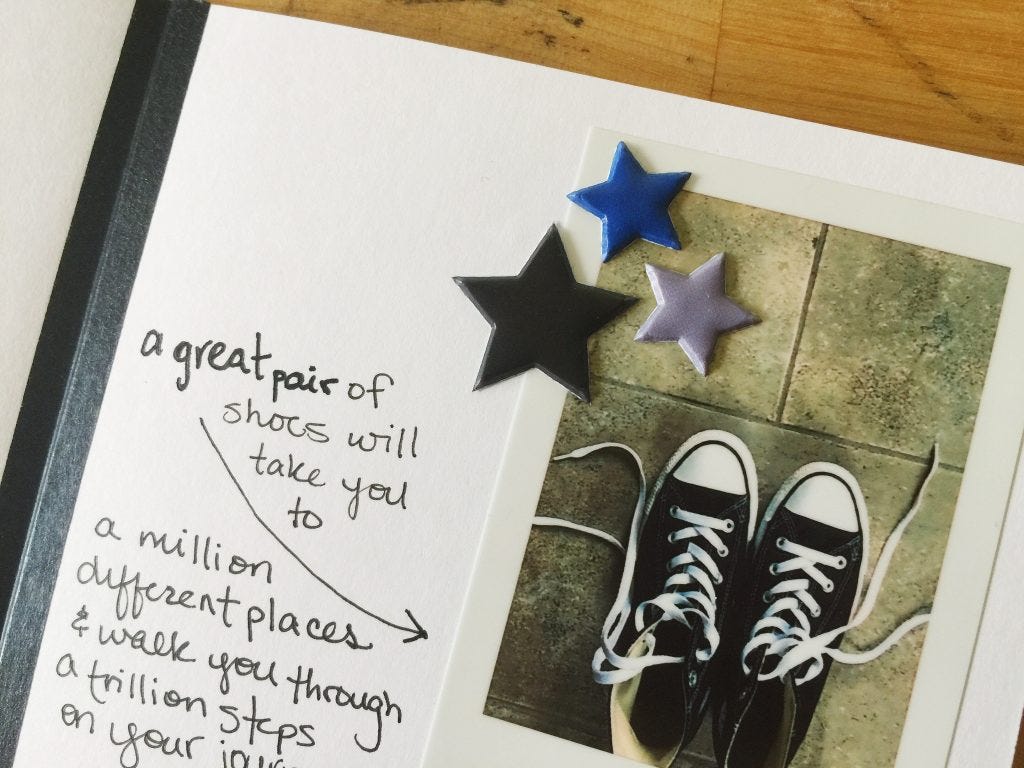 a great pair of
shoes will
take you
to
a million
different places
& walk you through
a trillion steps
on your